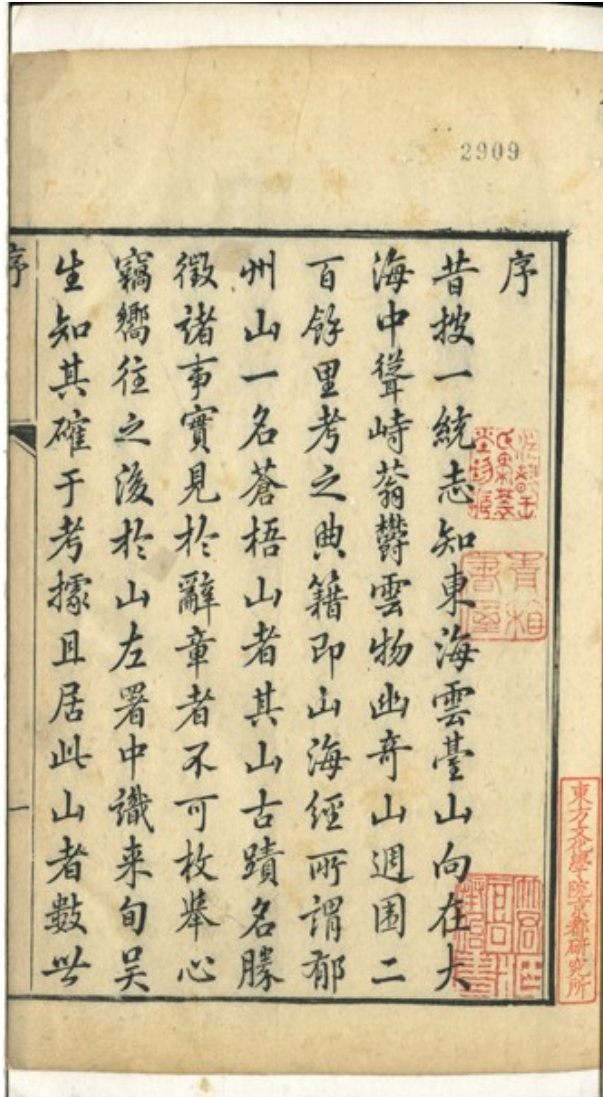 2909
序
昔披一統志知東海雲臺山向在大
海中聳峙蓊鬱雲物幽奇山週圍二
百餘里考之典籍即山海經所謂郁
州山一名蒼梧山者其山古蹟名勝
徵諸事實見於辭章者不可枚舉心
竊嚮往之後於山左署中識來旬吳
生知其確于考據且居此山者數世
序
一
青相
書屋
東方文化學院京都研究所